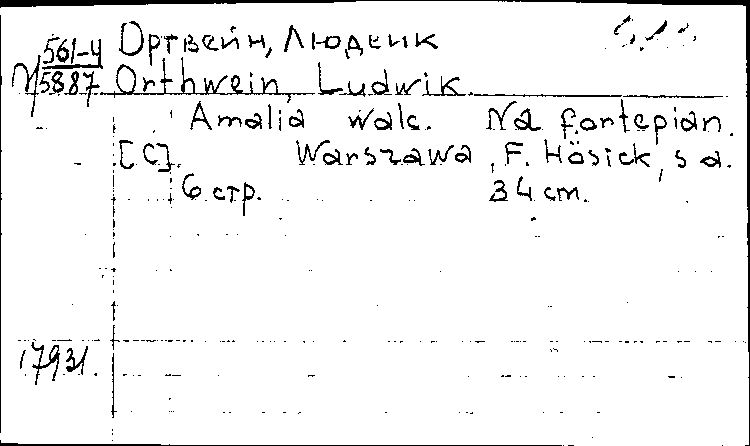 561-4 Ортвейн, Людвик
5887 Orthwein, Ludwik.
Amalia walc. Na fortepian.
[C]. Warszawa, F. Hösick, s a.
6 стр. 34 cm.
17931.